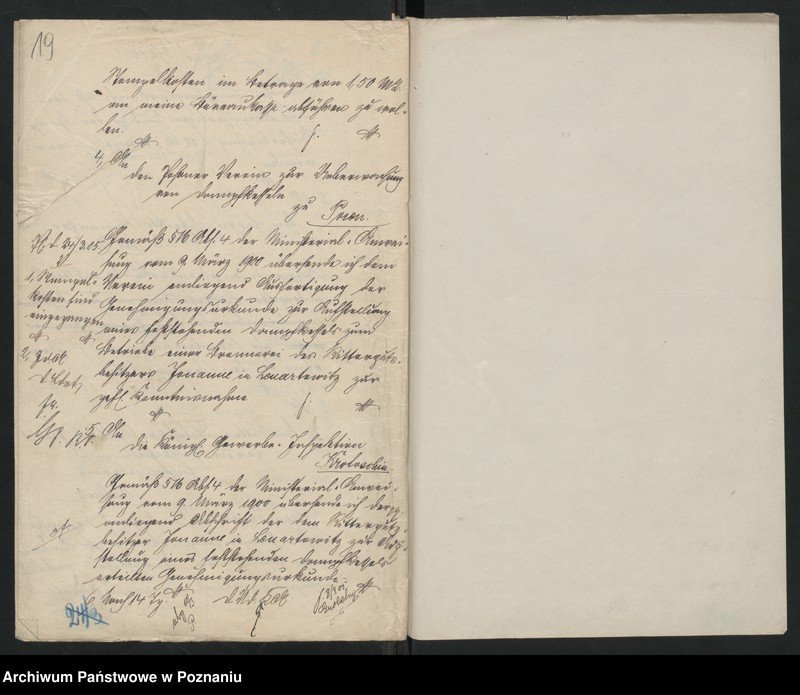 19
Stempelkosten im Betrage von 1,50 Mk.
an meine Büreaukasse abführen zu wol-
len.
4, An
den Posener Verein zur Ueberwachung
von Dampfkesseln
zu Posen.
Gemäß § 16 Abs. 4 der Ministerial-Anwei-
sung vom 9. März 1900 übersende ich dem
Verein anliegend Ausfertigung der
Genehmigungsurkunde zur Aufstellung
eines feststehenden Dampfkessels zum
Betriebe einer Brennerei des Ritterguts-
besitzers Jouanne in Lenartowitz zur
gefl. Kenntnisnahme.
1, Stempel-
kosten sind
eingegangen
2, Z. d. A.
5, An
die Königl. Gewerbe-Inspektion
Krotoschin.
Gemäß § 16 Abs. 4 der Ministerial-Anwei-
sung vom 9. März 1900 übersende ich der
anliegend Abschrift der dem Ritterguts-
besitzer Jouanne in Lenartowitz zur Auf-
stellung eines feststehenden Dampfkessels
erteilten Genehmigungsurkunde.
6, Nach 14 Tg.
Archiwum Państwowe w Poznaniu